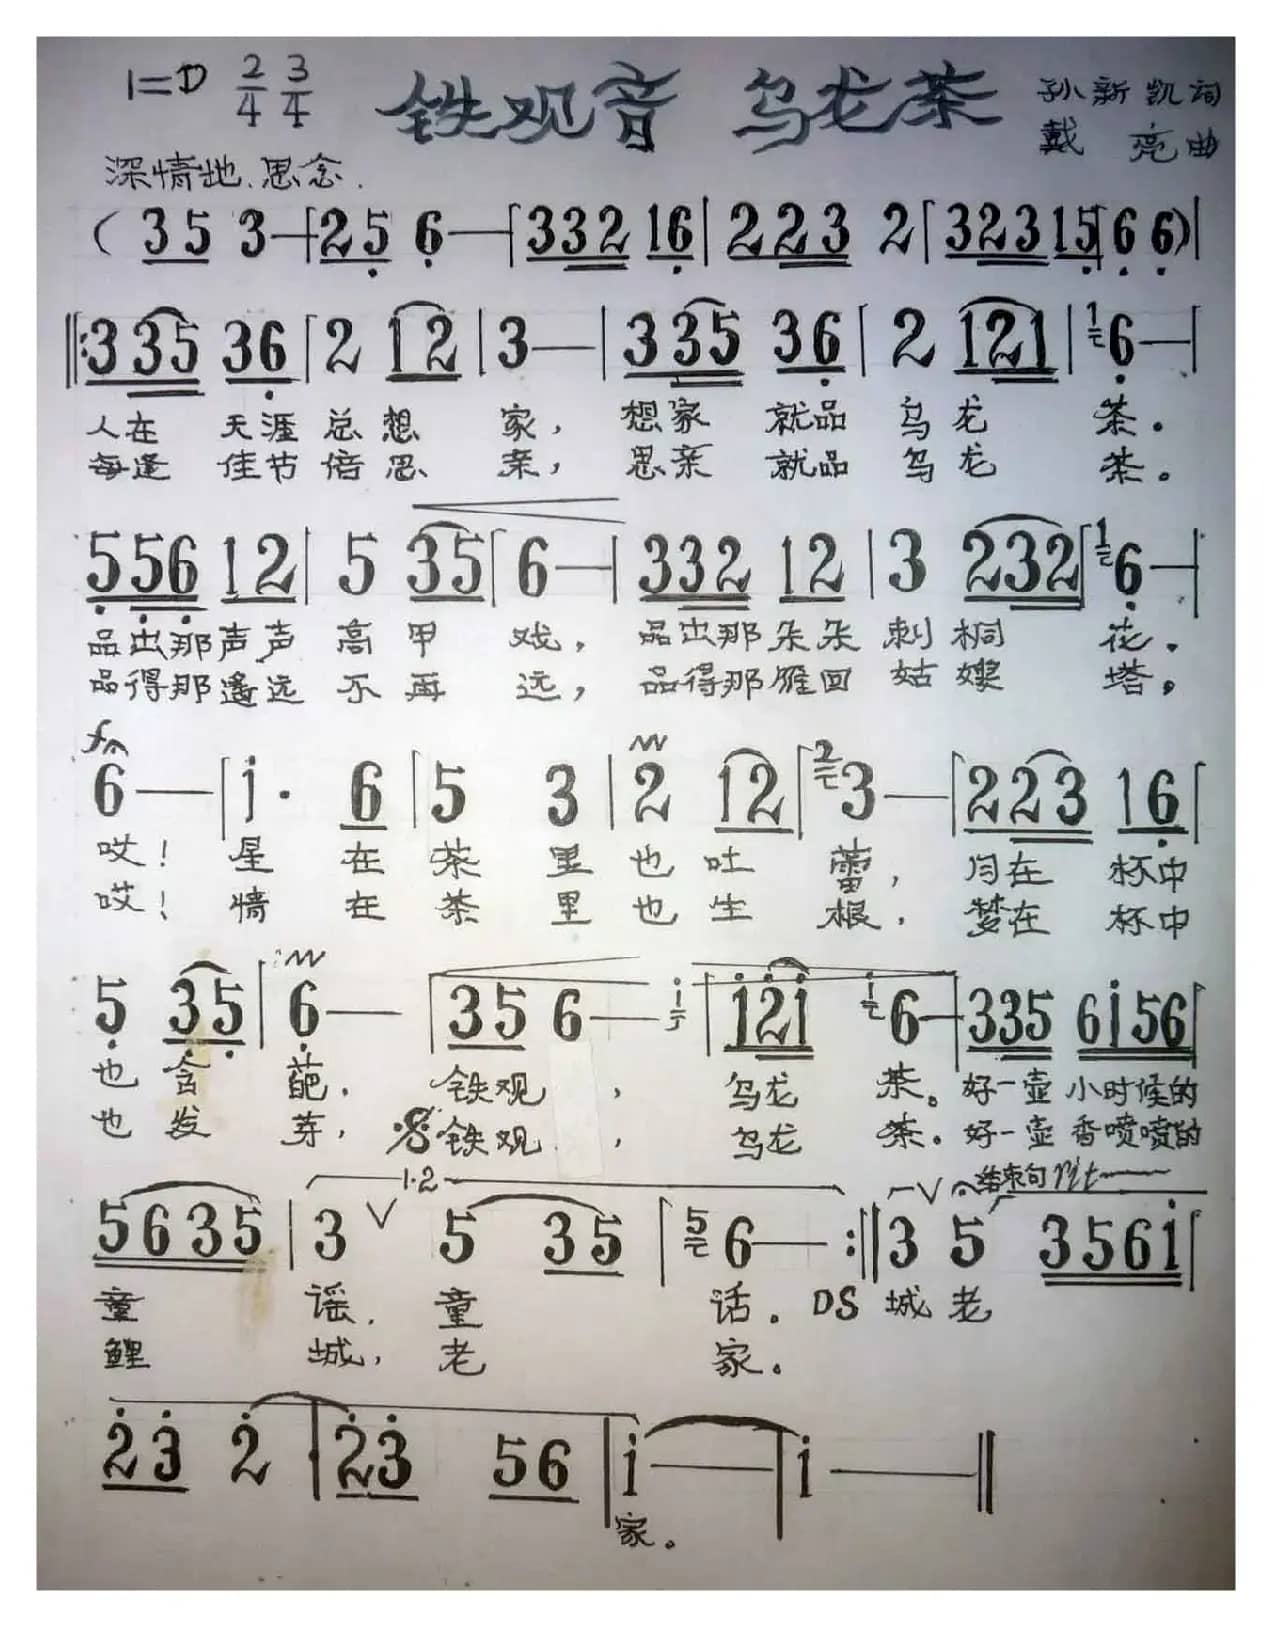 1=D 2/4 3/4 铁观音 乌龙茶 孙新凯词
戴亮曲
深情地、思念.
( 3 5 3 — | 2 5 6 — | 3 3 2 1 6 | 2 2 3 2 | 3 2 3 1 5 | 6 6 ) |
‖: 3 3 5 3 6 | 2 1 2 | 3 — | 3 3 5 3 6 | 2 1 2 1 | 1 6 — |
人在 天涯 总想 家, 想家 就品 乌龙 茶.
每逢 佳节 倍思 亲, 思亲 就品 乌龙 茶。
5 5 6 1 2 | 5 3 5 | 6 — | 3 3 2 1 2 | 3 2 3 2 | 1 6 — |
品出那声声 高甲 戏, 品出那朵朵 刺桐 花.
品得那遥远 不再 远, 品得那雁回 姑嫂 塔,
6 — | i · 6 | 5 3 | 2 1 2 | 2 3 — | 2 2 3 1 6 |
哎! 星 在 茶 里 也 吐 蕾, 月在 杯中
哎! 情 在 茶 里 也 生 根, 梦在 杯中
5 3 5 | 6 — | 3 5 6 — i | i 2 i i 6 — | 3 3 5 6 i 5 6 |
也 含 葩, 铁观 , 乌龙 茶。好一壶 小时候的
也 发 芽, 铁观 , 乌龙 茶。好一壶 香喷喷的
1.2 结束句 rit
5 6 3 5 | 3 V 5 3 5 | 5 6 — :‖ 3 5 3 5 6 i |
童 谣. 童 话. DS 城 老
鲤 城, 老 家。
2 3 2 | 2 3 5 6 | i — | i — ‖
家。